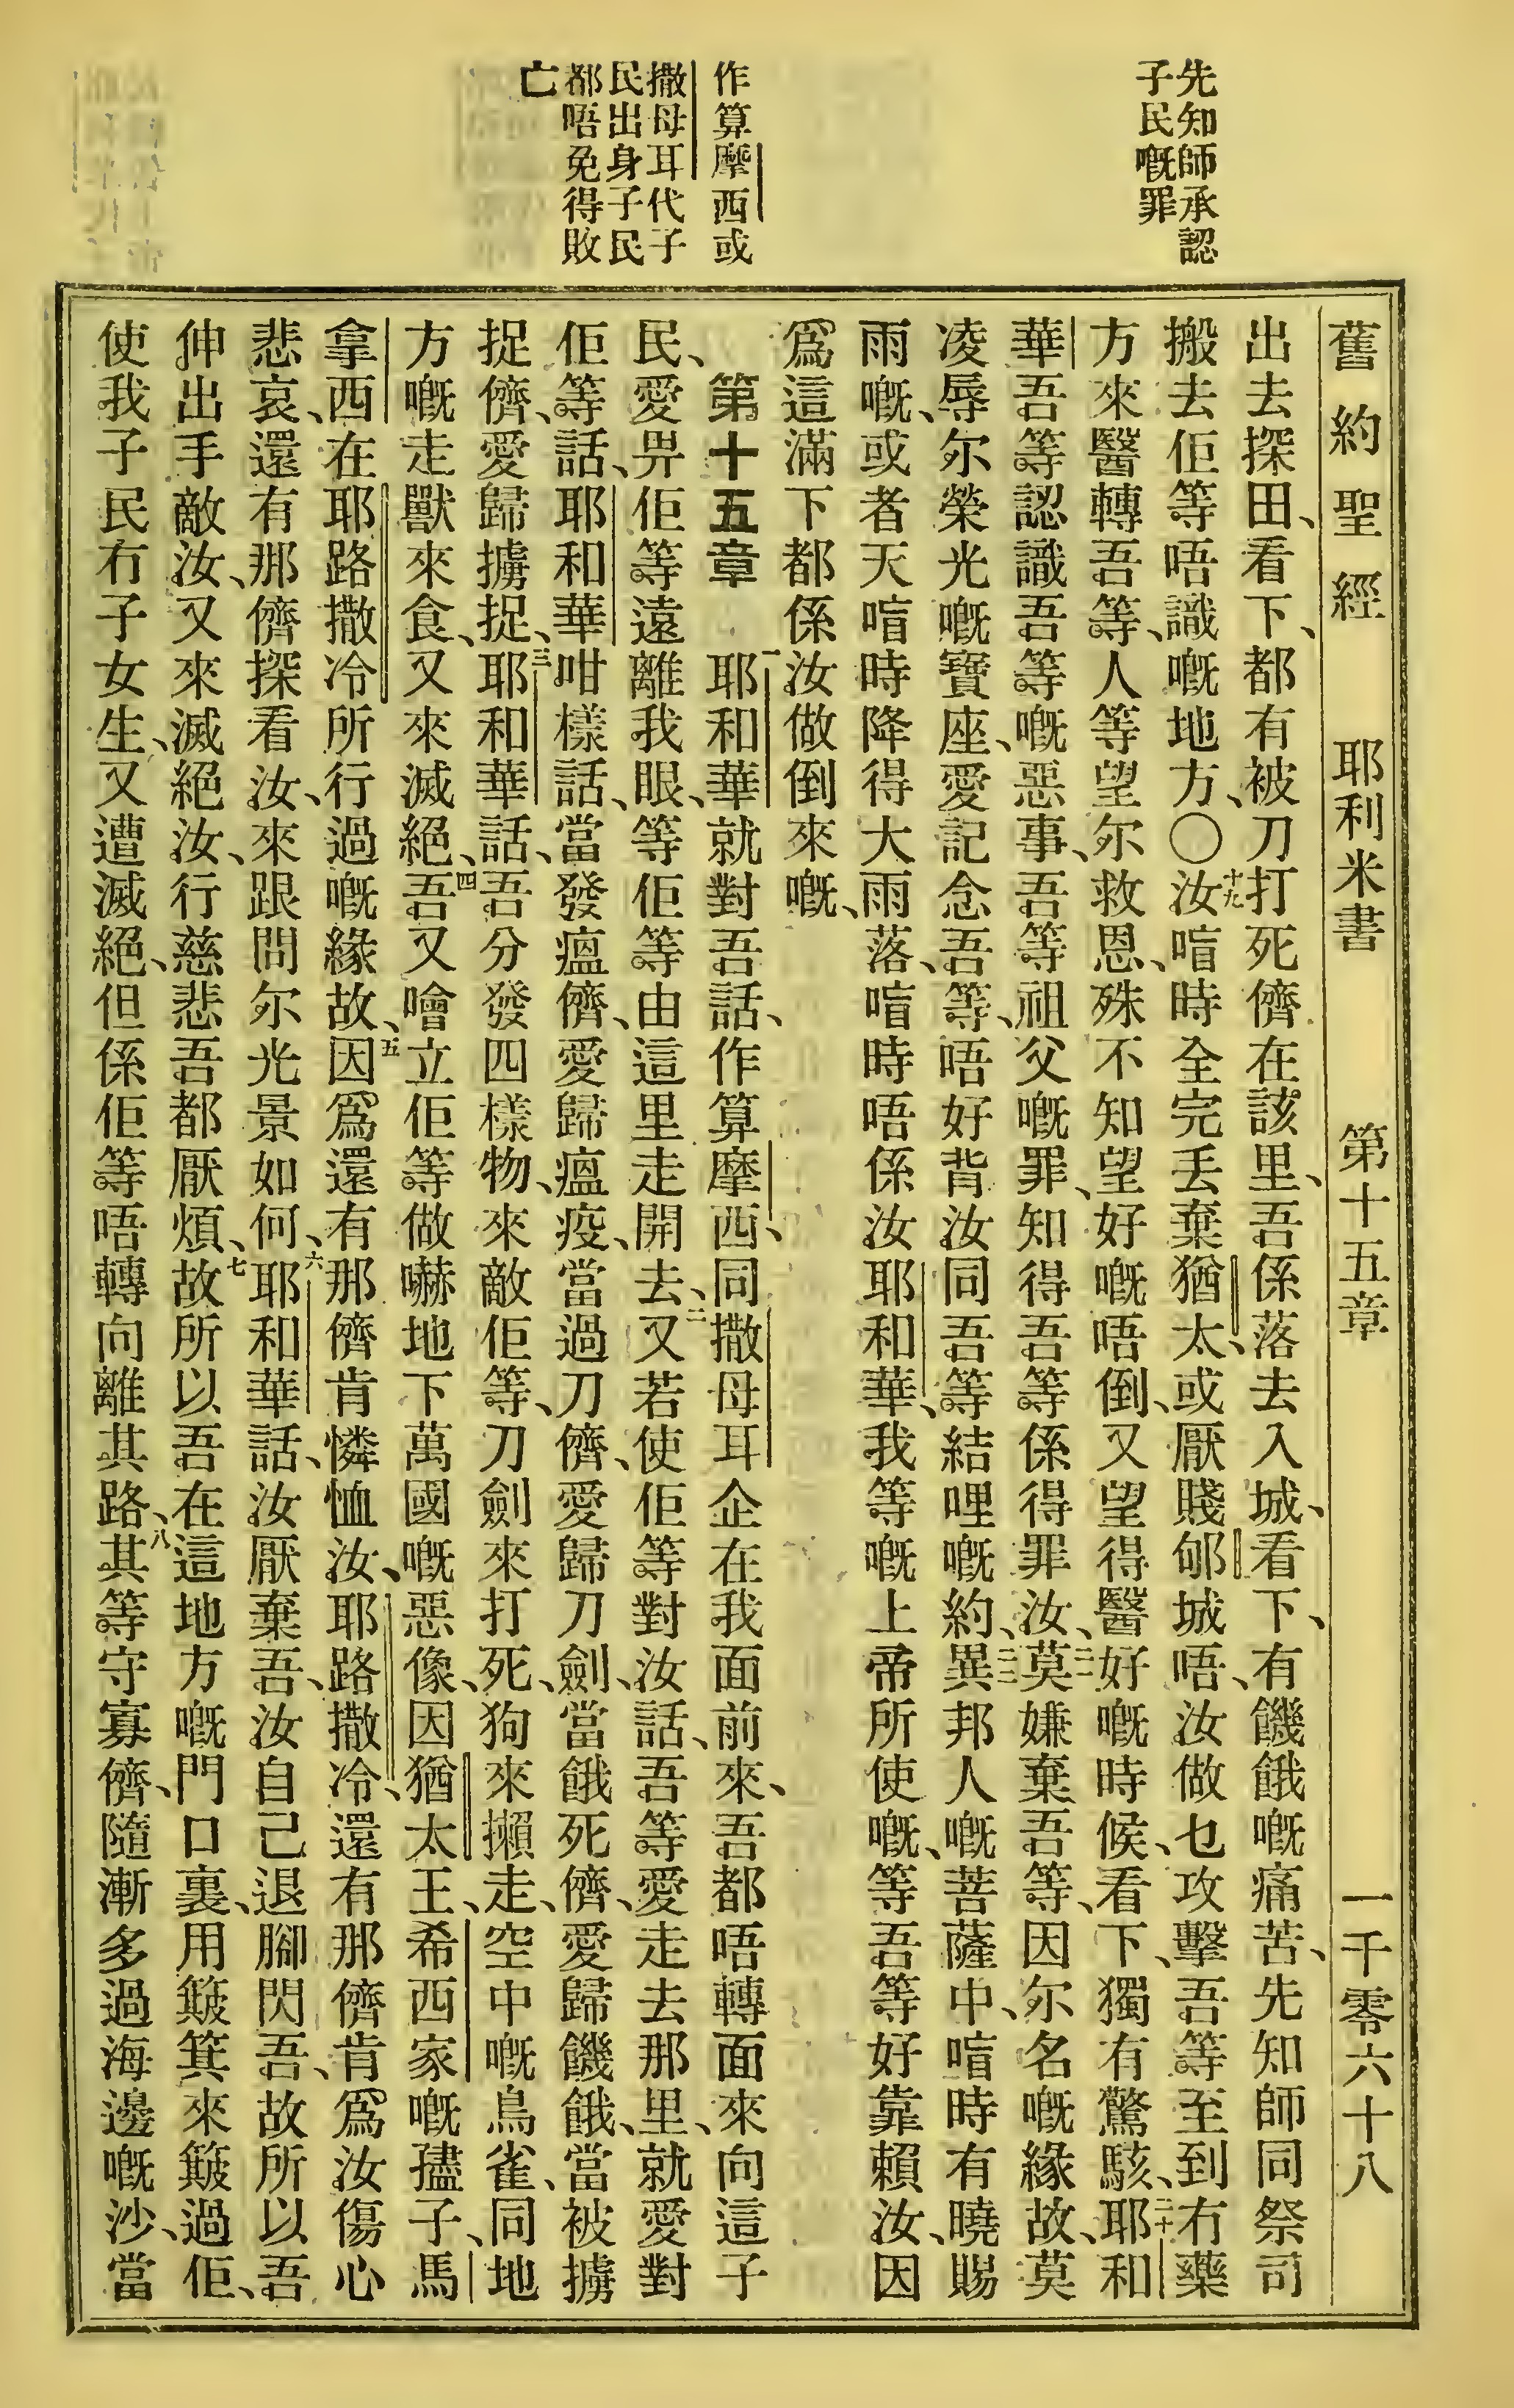 先知師承認
子民嘅罪
作算摩西或
撒母耳代子
民出身子民
都唔免得敗
亡
舊約聖經 耶利米書 第十五章 一千零六十八
出去探田、看下、都有被刀打死儕在該里、吾係落去入城、看下、有饑餓嘅痛苦、先知師同祭司
搬去佢等唔識嘅地方、〇十九汝喑時全完丟棄猶太、或厭賤郇城唔、汝做乜攻擊吾等至到冇藥
方來醫轉吾等、人等望尔救恩、殊不知望好嘅唔倒、又望得醫好嘅時候、看下、獨有驚駭、二十耶和
華吾等認識吾等嘅惡事、吾等祖父嘅罪、知得吾等係得罪汝、二一莫嫌棄吾等、因尔名嘅緣故、莫
凌辱尔榮光嘅寶座、愛記念吾等、唔好背汝同吾等結哩嘅約、二二異邦人嘅菩薩中、喑時有曉賜
雨嘅、或者天喑時降得大雨落、喑時唔係汝耶和華、我等嘅上帝所使嘅、等吾等好靠賴汝、因
爲這滿下都係汝做倒來嘅、
第十五章 一耶和華就對吾話、作算摩西、同撒母耳企在我面前來、吾都唔轉面來向這子
民、愛畀佢等遠離我眼、等佢等由這里走開去、二又若使佢等對汝話、吾等愛走去那里、就愛對
佢等話、耶和華咁樣話、當發瘟儕、愛歸瘟疫、當過刀儕、愛歸刀劍、當餓死儕、愛歸饑餓、當被擄
捉儕、愛歸擄捉、三耶和華話、吾分發四樣物、來敵佢等、刀劍來打死、狗來攋走、空中嘅鳥雀、同地
方嘅走獸來食、又來滅絕、四吾又噲立佢等做嚇地下萬國嘅惡像、因猶太王、希西家嘅孻子、馬
拿西在耶路撒冷所行過嘅緣故、五因爲還有那儕肯憐恤汝、耶路撒冷、還有那儕肯爲汝傷心
悲哀、還有那儕探看汝、來跟問尔光景如何、六耶和華話、汝厭棄吾、汝自己退腳閃吾、故所以吾
伸出手敵汝、又來滅絕汝、行慈悲吾都厭煩、七故所以吾在這地方嘅門口裏、用簸箕來簸過佢、
使我子民冇子女生、又遭滅絕、但係佢等唔轉向離其路、八其等守寡儕、隨漸多過海邊嘅沙、當